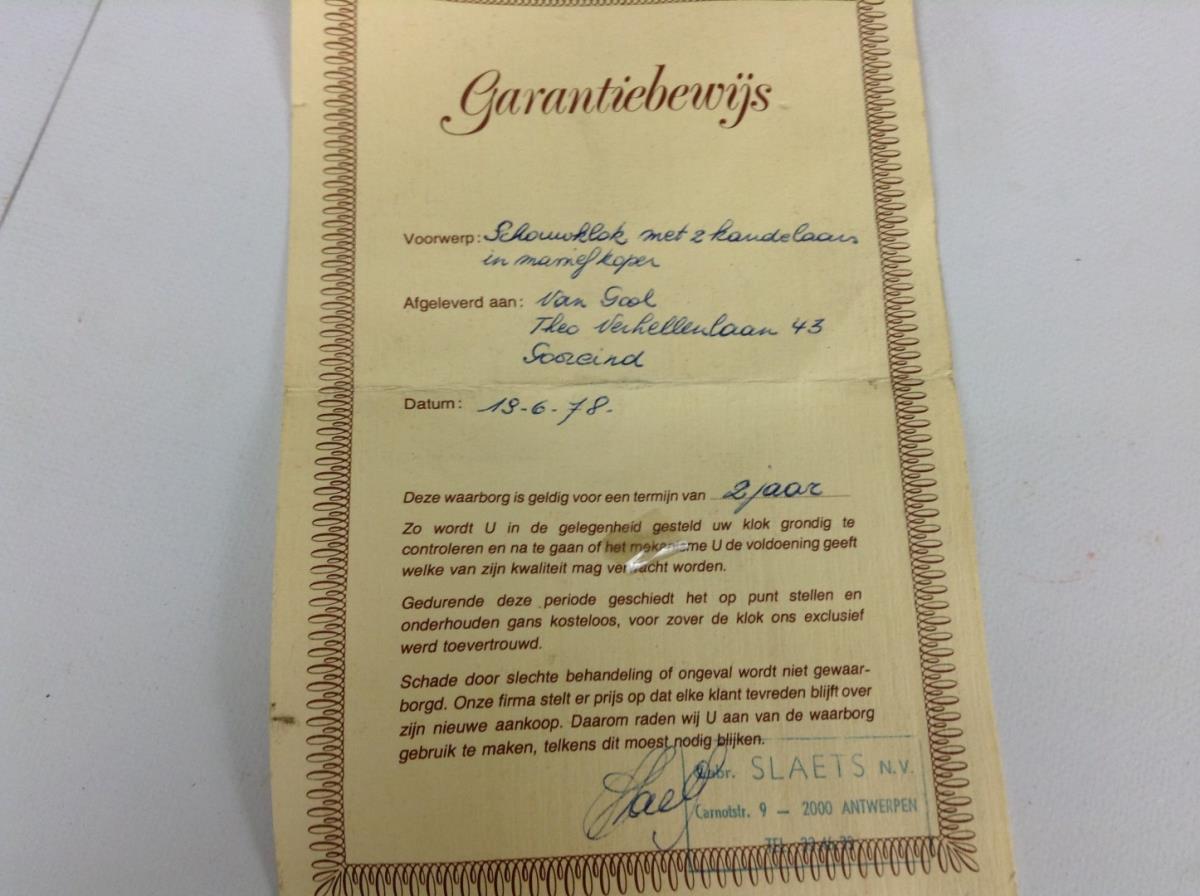 Garantiebewijs
Voorwerp: Schouwklok met 2 kandelaars
in massief koper
Afgeleverd aan: Van Gool
Theo Verhellenlaan 43
Gooreind
Datum: 19-6-78.
Deze waarborg is geldig voor een termijn van 2 jaar
Zo wordt U in de gelegenheid gesteld uw klok grondig te
controleren en na te gaan of het mekanisme U de voldoening geeft
welke van zijn kwaliteit mag verwacht worden.
Gedurende deze periode geschiedt het op punt stellen en
onderhouden gans kosteloos, voor zover de klok ons exclusief
werd toevertrouwd.
Schade door slechte behandeling of ongeval wordt niet gewaar-
borgd. Onze firma stelt er prijs op dat elke klant tevreden blijft over
zijn nieuwe aankoop. Daarom raden wij U aan van de waarborg
gebruik te maken, telkens dit moest nodig blijken.
Gebr. SLAETS N.V.
Carnotstr. 9 — 2000 ANTWERPEN
TEL.